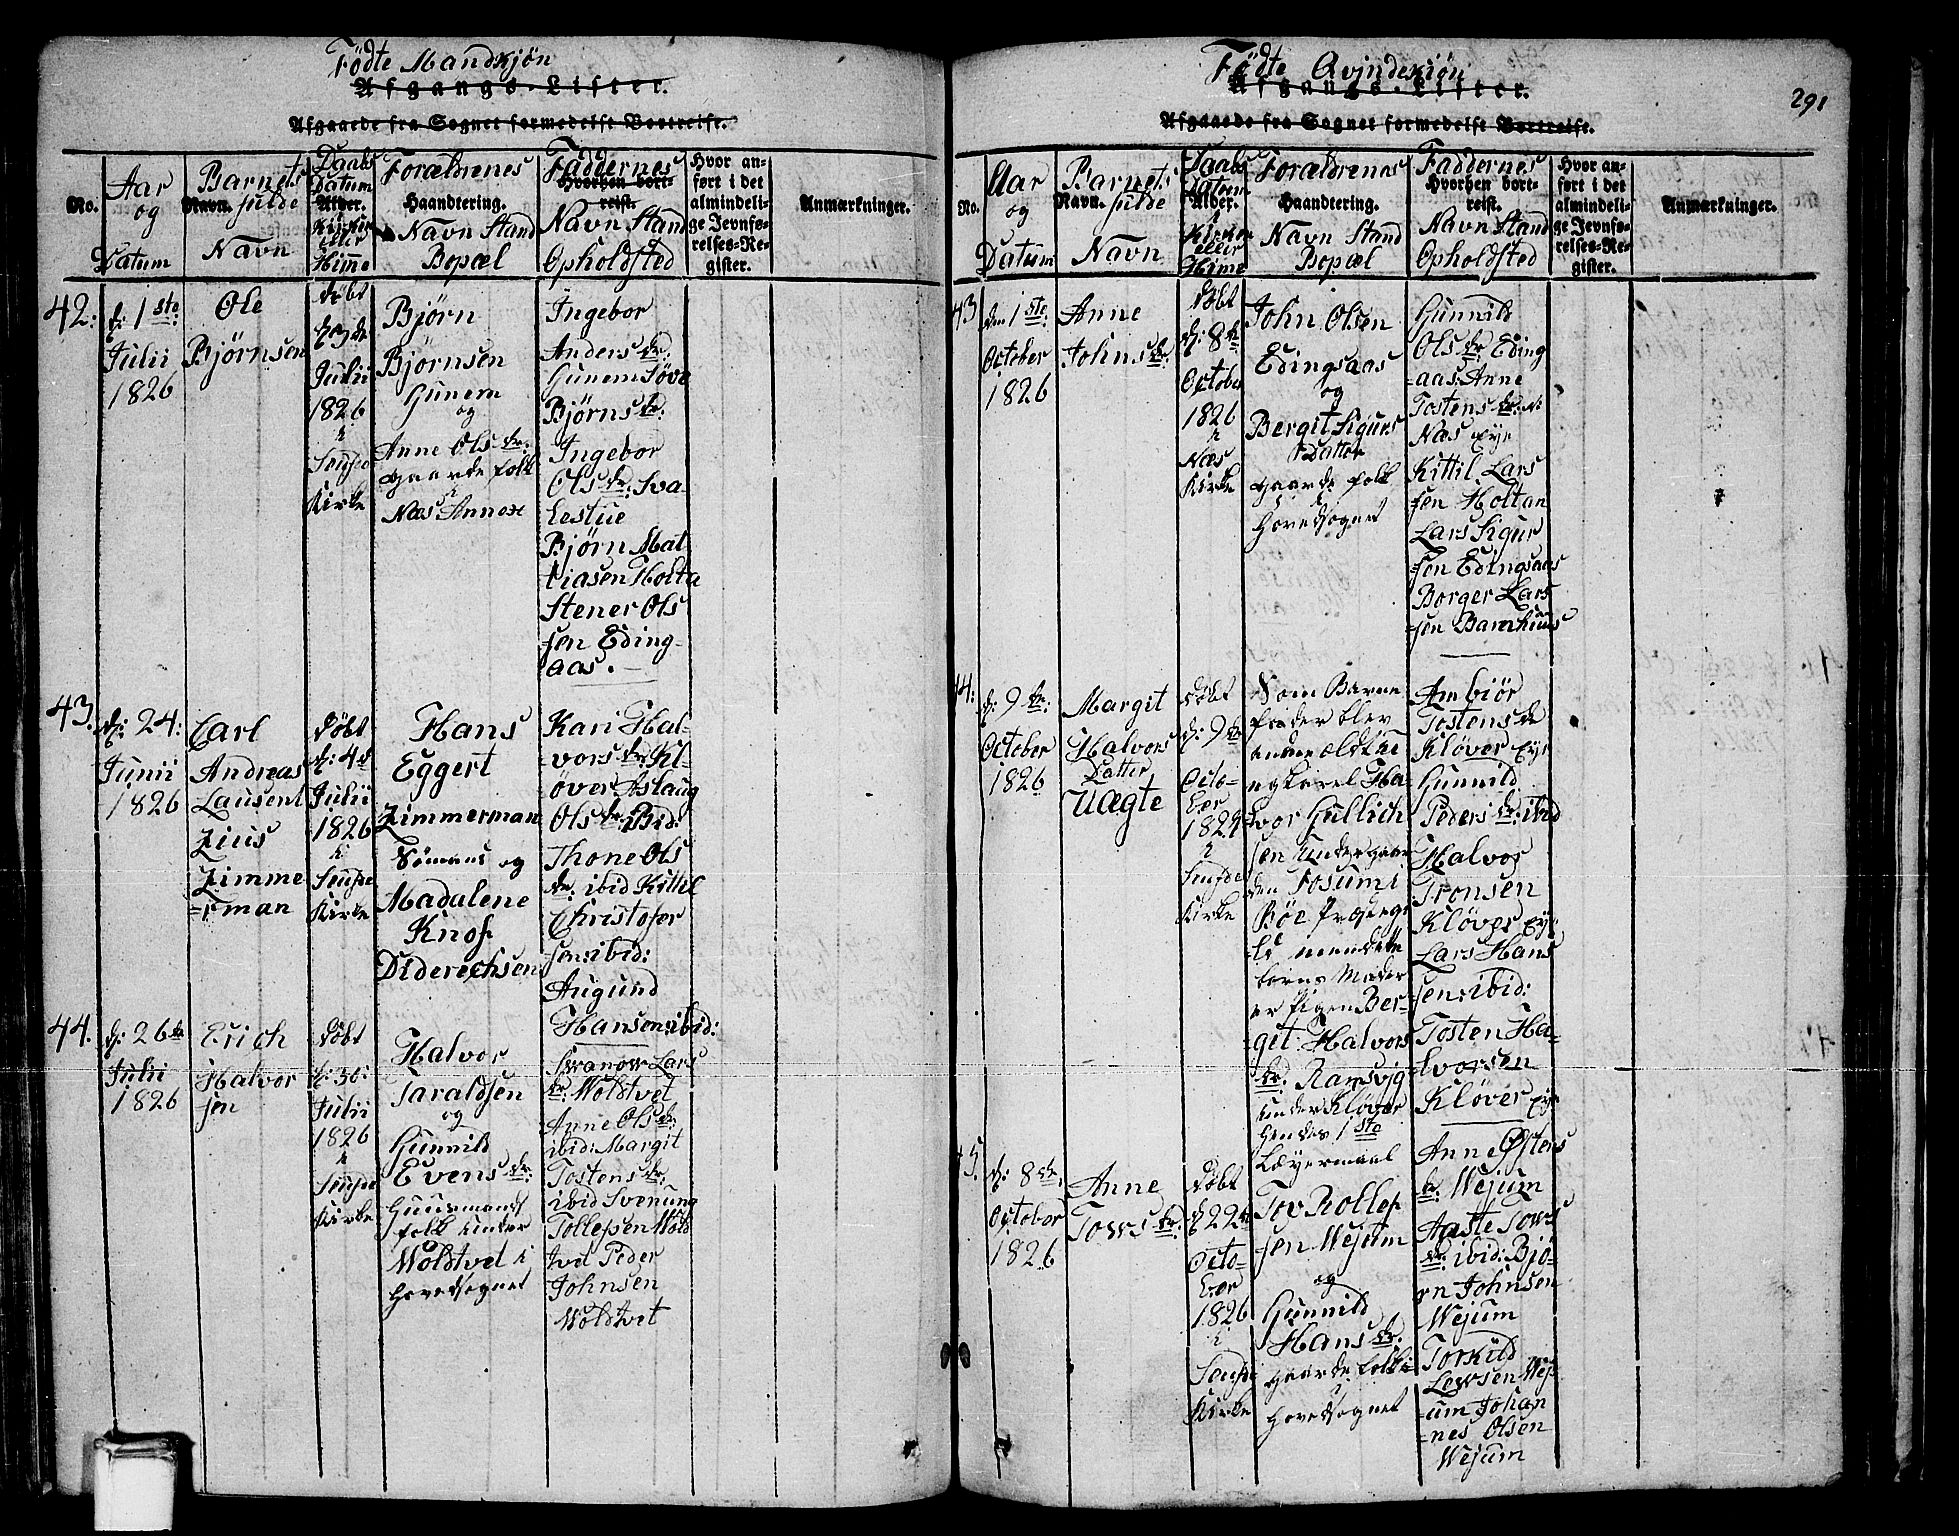 Födte Mandkjön
Afgangs-Lister.
Afgaaede fra Sognet formedelst Bortreise.
No.
Aar
og
Datum
Barnets
Navn. fulde
Navn
Daabs
Datum
Alder.
i Kirken
eller
Hiǃme
Forældrenes
Haandtering.
Navn Stand
Bopæl
Faddernes
Hvorhen bort-
reist.
Navn Stand
Opholdsted
Hvor an-
ført i det
almindeli-
ge Jevnfø-
relses-Re-
gister.
Anmærkninger.
42:
d: 1ste
Julii
1826
Ole
Björnsen
döbt
Julii
1826
i
Kirke
Björn
Björnsen
Gunem
og
Anne Ols dr.
gaardefolk
i
Næs Annex
Ingebor
Anders dr:
Gunem Töve
Björns dr:
Ingebor
Ols dr: Sva-
lestue
Björn Mat
tiasen Holta
Stener Ols
sen Eding-
aas.
43.
d: 24:
Junii
1826
Carl
Andreas
Lausent
Zius
Zimme
=rman
döbt
d: 4d
Julii
1826
i
Kirke
Hans
Eggert
Zimmerman
Sömand og
Madalene
Knof
Diderechsen
Kari Hal-
vors dr: Kl-
över Aslaug
Ols dr. Ibid:
Thone Ols
dr: ibid Kittil
Christofer
sen: ibid:
Augund
Hansen: ibid:
44.
d: 26de
Julii
1826
Erich
Halvor
sen
döbt
d: 30:
Julii
1826
i
Kirke
Halvor
Taraldsen
og
Gunnild
Evens dr:
Huusmands
folk under
Woldtvet i
Hovedsognet
Svanow Lars
dr: Woldtvet
Anne Ols dr:
ibid: Margit
Tostens dr:
ibid Svenung
Tollefsen Wold
tvet Peder
Johnsen
Woldtvet
291
Födte Qvindekjön
Afgangs-Lister.
Afgaaede fra Sognet formedelst Bortreise.
No.
Aar
og
Datum
Barnets
Navn. fulde
Navn
Daabs
Datum
Alder.
i
Kirken
eller
Hime
Forældrenes
Haandtering.
Navn Stand
Bopæl
Faddernes
Hvorhen bort-
reist.
Navn Stand
Opholdsted
Hvor an-
ført i det
almindeli-
ge Jevnfø-
relses-Re-
gister.
Anmærkninger.
43
den 1ste:
October
1826
Anne
Johns dr:
döbt
d: 8de
October
1826
i
Næs
Kirke
John Olsen
Edingsaas
og
Bergit Sigurs
Datter
gaardefolk
i
Hovedsognet
Gunnild
Ols dr Eding
=aas: Anne
Tostens dr:
Næs Eye
Kittil Lars
sen Holtan
Lars Sigur
sen Edingsaas
Borger Lars
=sen Barnhuus
44:
d: 9de:
October
1826
Margit
Halvors
Datter
Uægte
döbt
d: 9de
Octo-
ber
i
Kirke
Som Barne
fader blev
Ha
lvor Gullich
sen under gaar
den
Böe
er Pigen Ber-
git: Halvors
dr: Ramsvig
under Klöver
Hendes 1ste
Leyermaal
Ambiör
Tostens dr
Klöver Eye
Gunnild
Peders dr: ibid
Halvor
Tronsen
Klöver Eye
Lars Hans
sen: ibid:
Tosten Ha-
lvorsen
Klöver Eye
45.
d: 8de:
October
1826
Anne
Tows dr:
döbt
d 22de
Octo-
ber
1826
i
Kirke
Tov Rollef
sen Wejum
og
Gunnild
Hans dr:
gaardefolk i
Hovedsognet
Anne Östens
dr: Wejum
Aaste Tows
dr: ibid: Bjö-
rn Johnsen
Wejum
Torkild
Lewsen Wej
=um Johan
=nes Olsen
Wejum